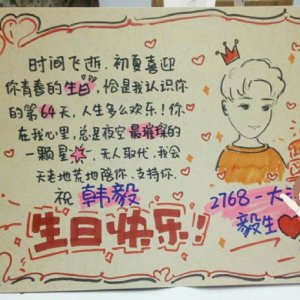 时间飞逝.初夏喜迎
你青春的生日,恰是我认识你
的第64天,人生多么欢乐!你
在我心里,总是夜空最璀璨的
一颗星,无人取代,我会
天老地荒地陪你.支持你.
祝 韩毅
生日快乐!
2768-大
毅生